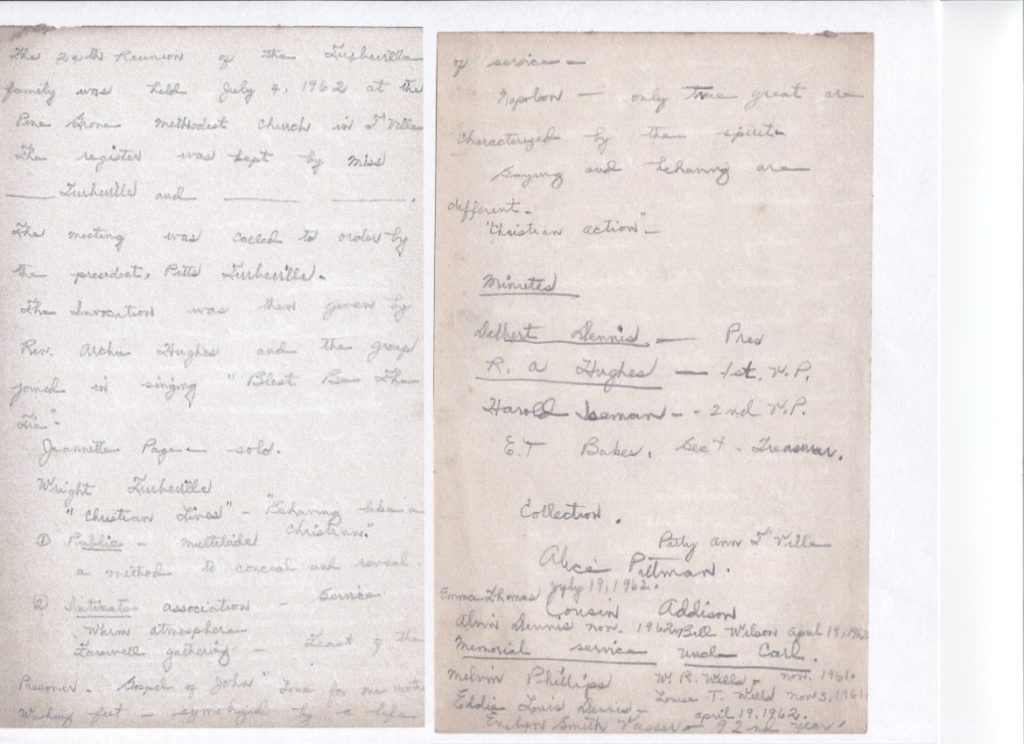 The 20th Reunion of the Turbeville
family was held July 4, 1962 at the
Pine Grove Methodist Church in T'Ville
The register was kept by Miss
____ Turbeville and ____ ____.
The meeting was called to order by
the president, Pitts Turbeville.
The Invocation was then given by
Rev. Archie Hughes and the group
joined in singing "Blest Be The
Tie"
Jeannette Page - solo.
Wright Turbeville
"Christian Lives" - "Behaving like a
Christian."
① Public - multitude
a method to conceal and reveal
② Intimate association - Service
Warm atmosphere
Farewell gathering - Feast of the
Passover - Gospel of John" Love for one another
Washing feet - symbolized by a life
of service -
Napoleon - only true great are
characterized by the spirit
Saying and behaving are
different -
"Christian action" -
Minutes
Delbert Dennis - Pres
R. A Hughes - 1st. V.P.
Harold - - 2nd V.P.
E.T Sec't - Treasurer.
Collection.
Patty Ann T'Ville
Alice Pittman.
July 19, 1962.
Emma Thomas Cousin Addison
Alvin Dennis Nov. 1962 Bill Wilson April 19, 1962
Memorial service Uncle Carl.
Melvin Phillips W. R. Wells - Nov. 1961.
Louise T. Wells Nov 3, 1961
Eddie Louis Dennis - April 19, 1962.
Smith - 92nd year.